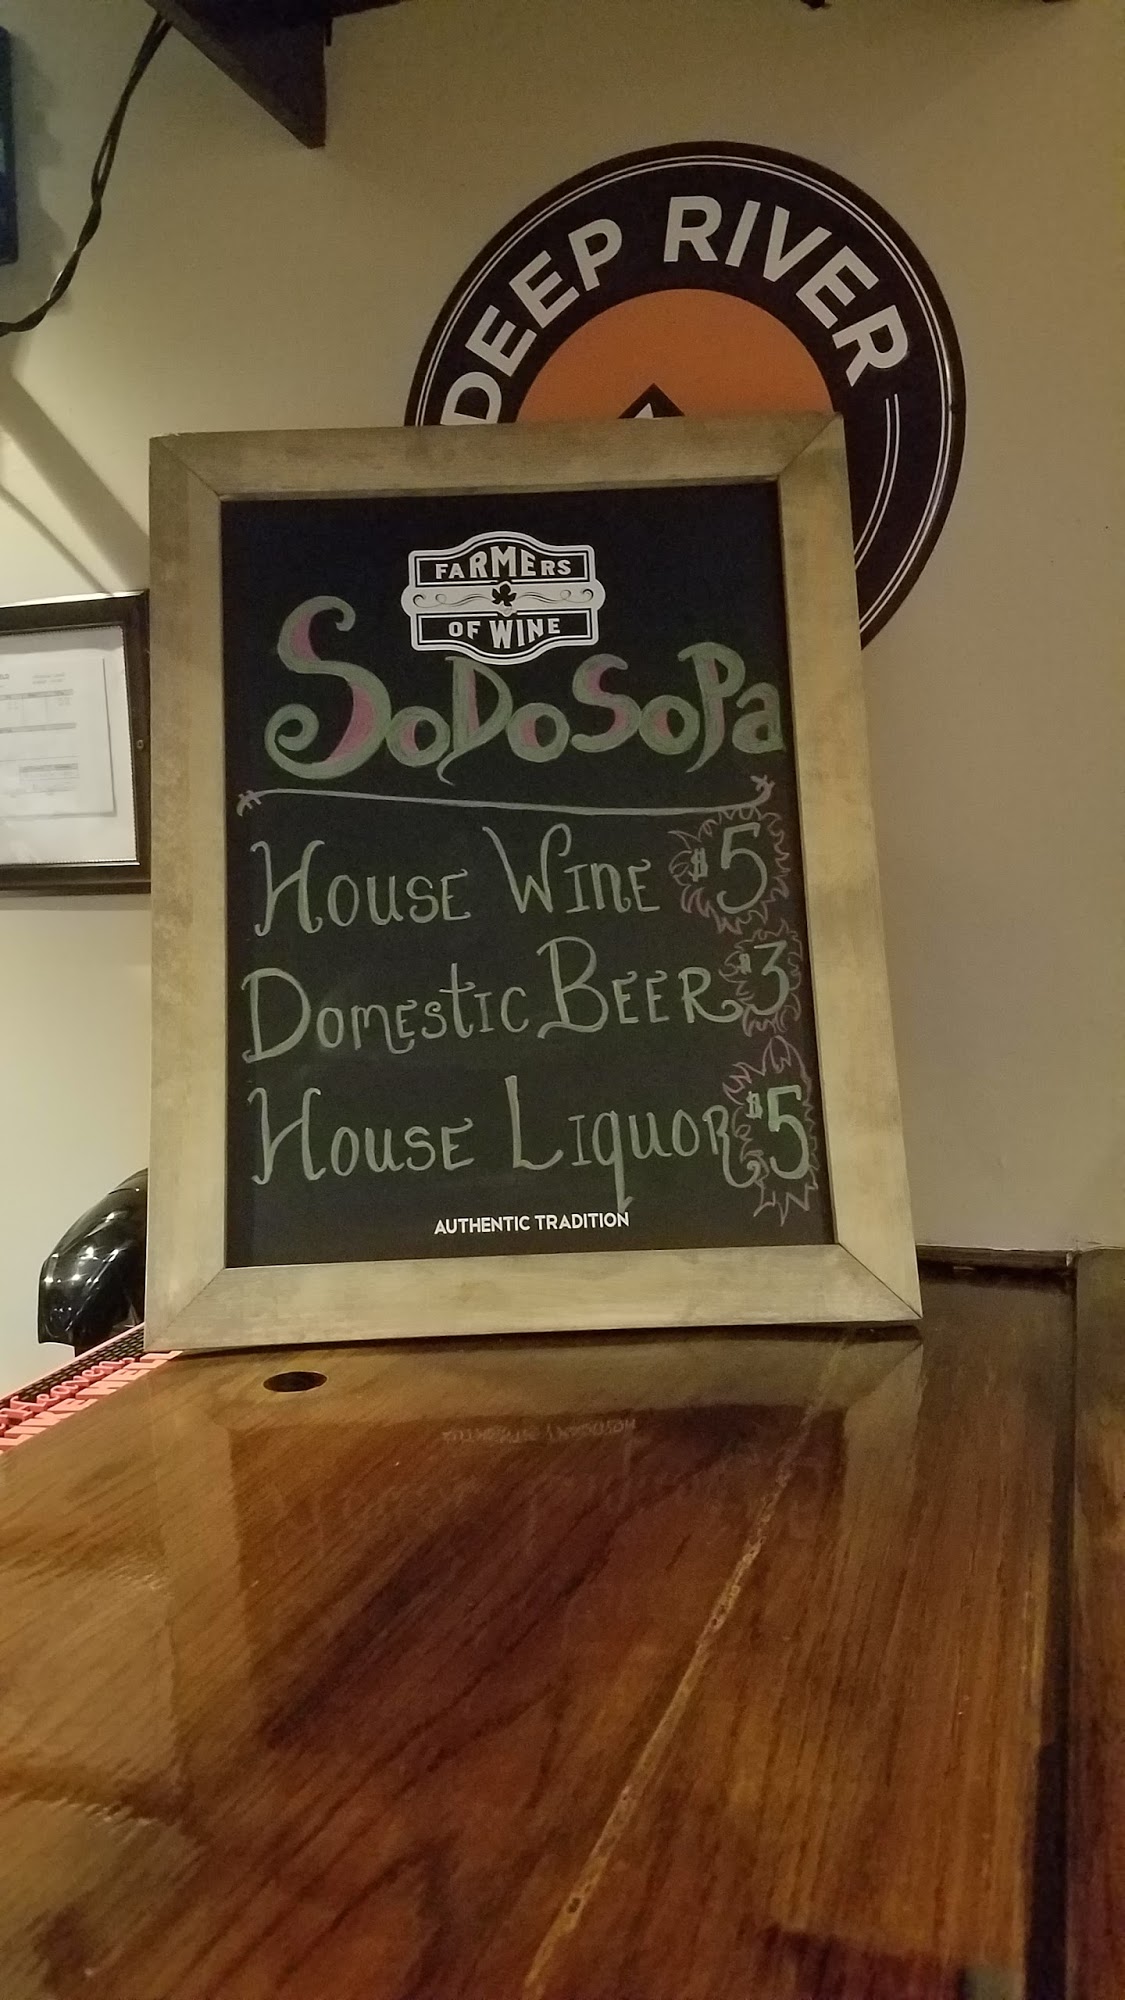 DEEP RIVER
FARMERS
OF WINE
SoDoSoPa
House Wine $5
Domestic Beer $3
House Liquor $5
AUTHENTIC TRADITION
LIKE MEL